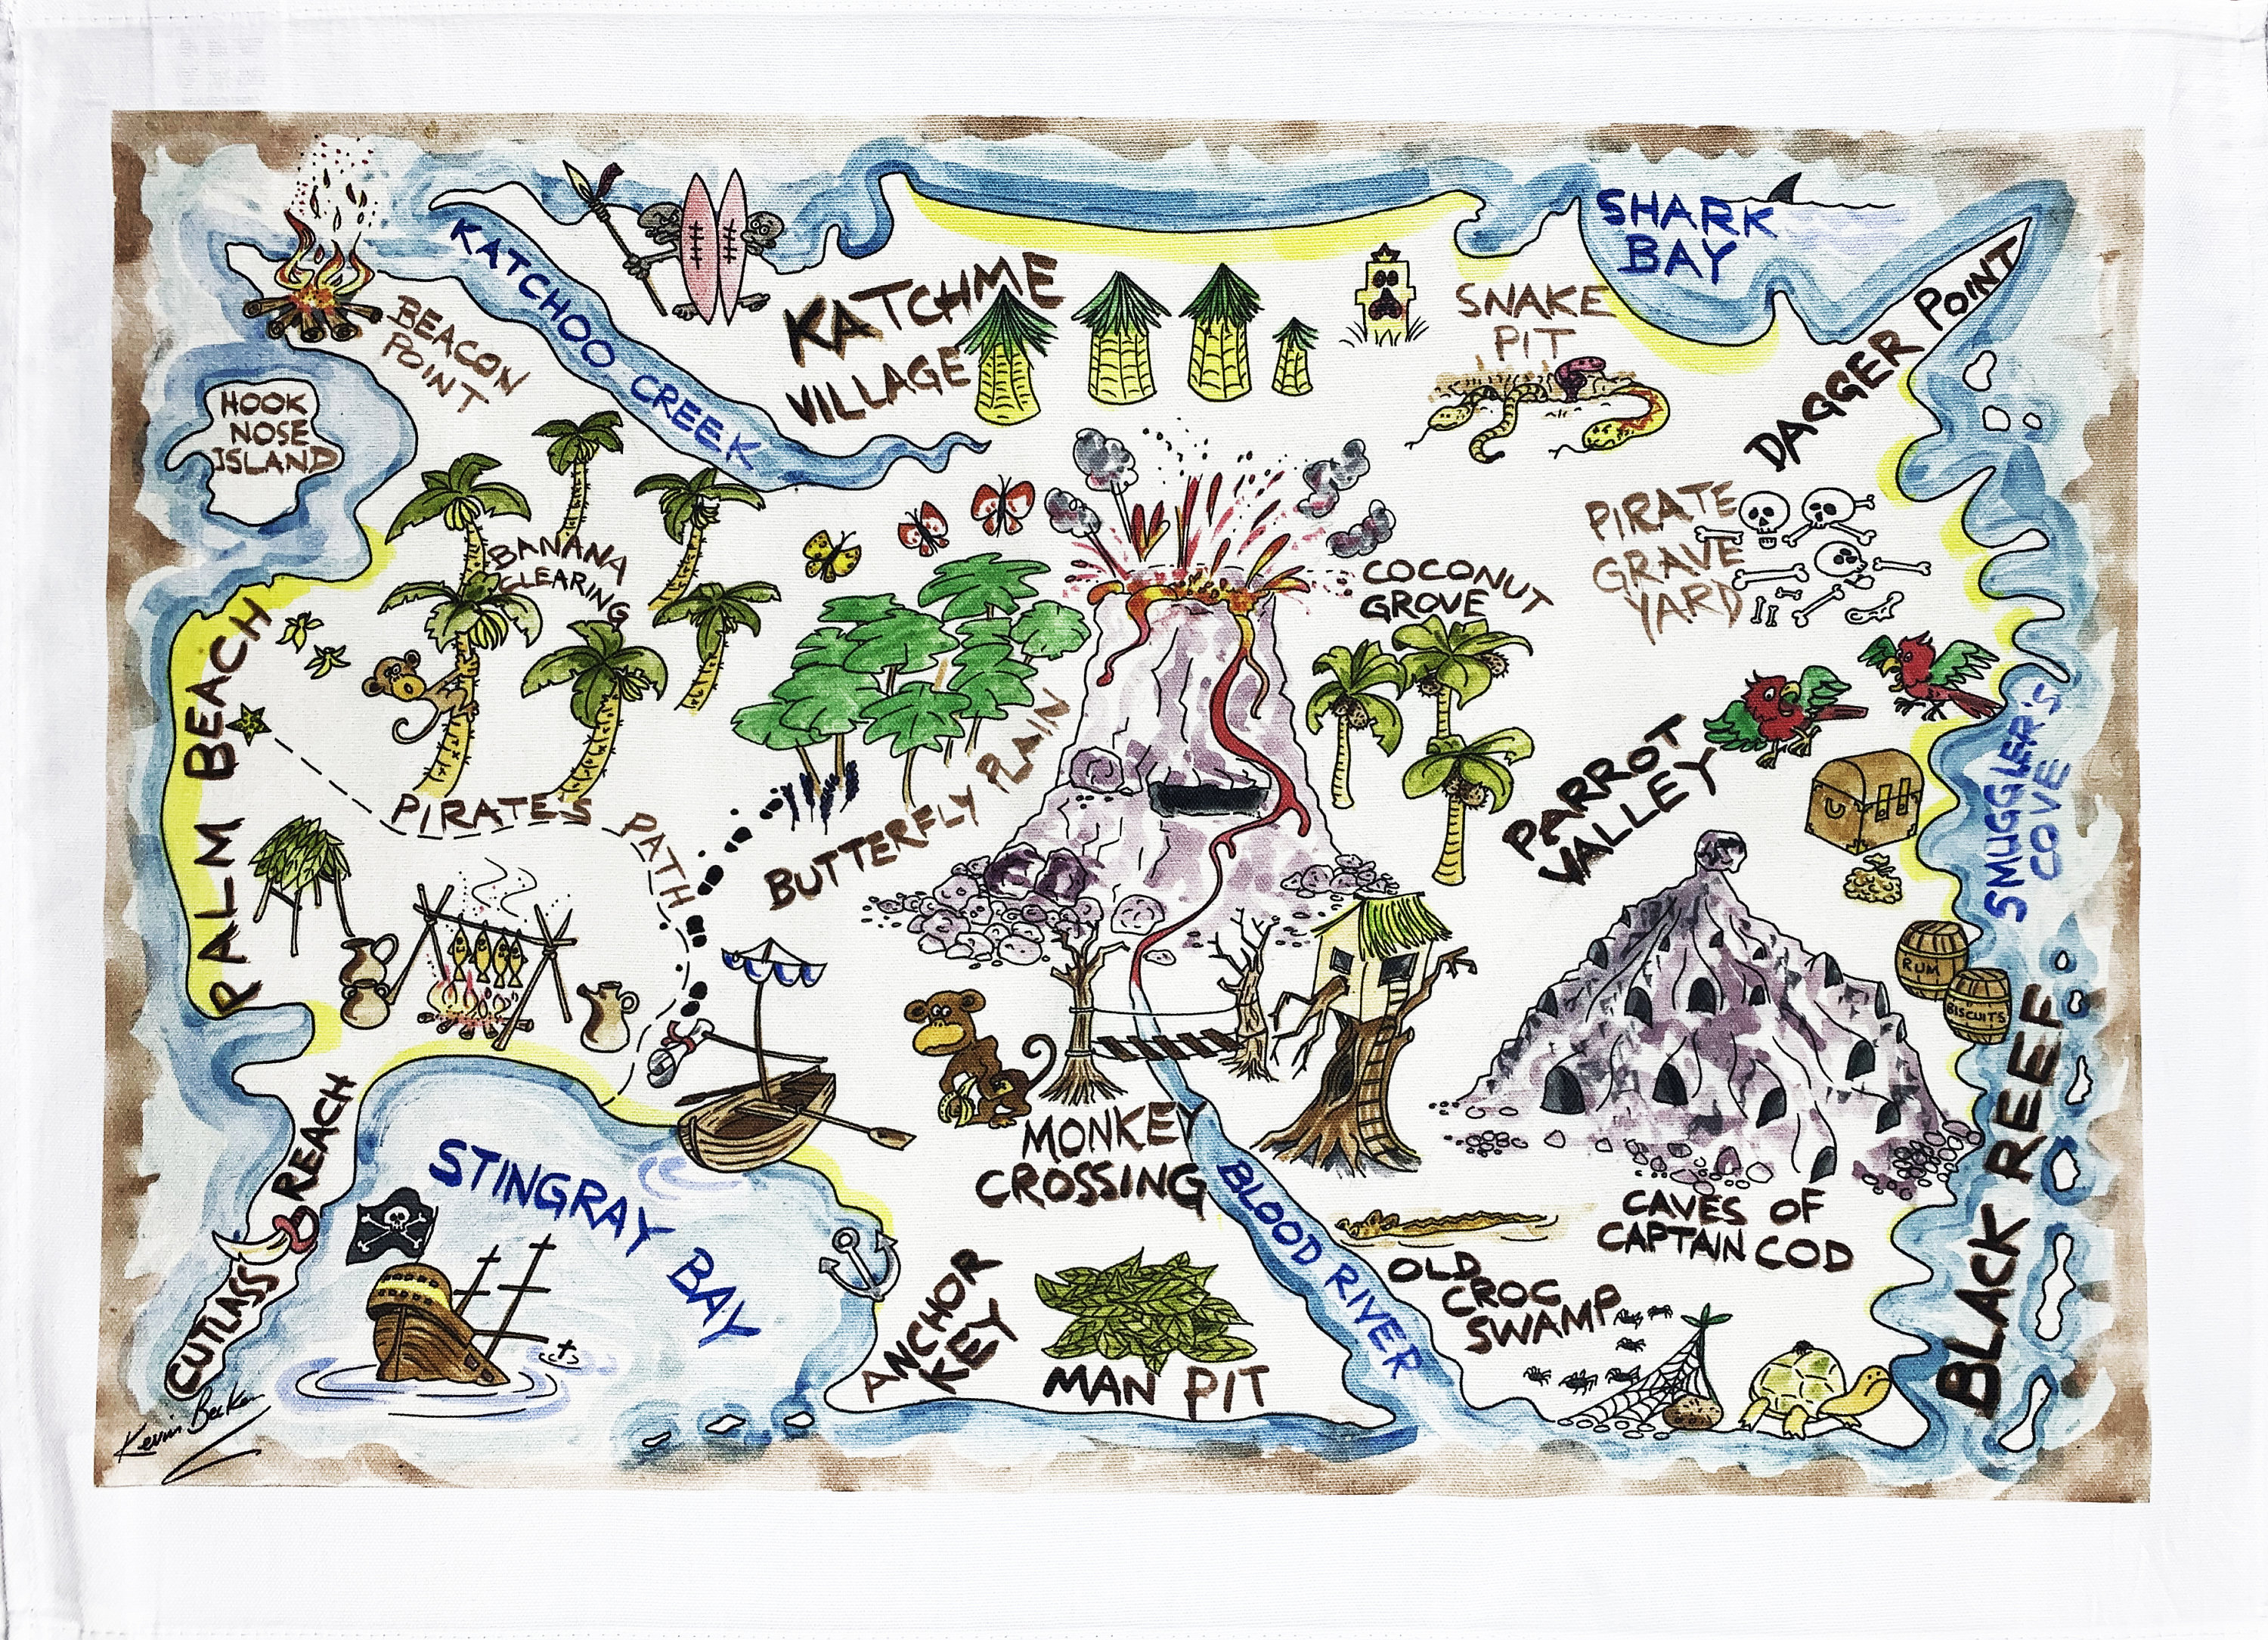 SHARK
BAY
KATCHOO CREEK
KATCHME
VILLAGE
SNAKE
PIT
DAGGER POINT
BEACON
POINT
HOOK
NOSE
ISLAND
BANANA
CLEARING
PIRATE
GRAVE
YARD
COCONUT
GROVE
PALM BEACH
PIRATE'S PATH
BUTTERFLY PLAIN
PARROT
VALLEY
SMUGGLER'S
COVE
RUM
BISCUITS
BLACK REEF
MONKEY
CROSSING
CUTLASS REACH
STINGRAY BAY
BLOOD RIVER
CAVES OF
CAPTAIN COD
OLD
CROC
SWAMP
ANCHOR
KEY
MAN PIT
Kevin Becken